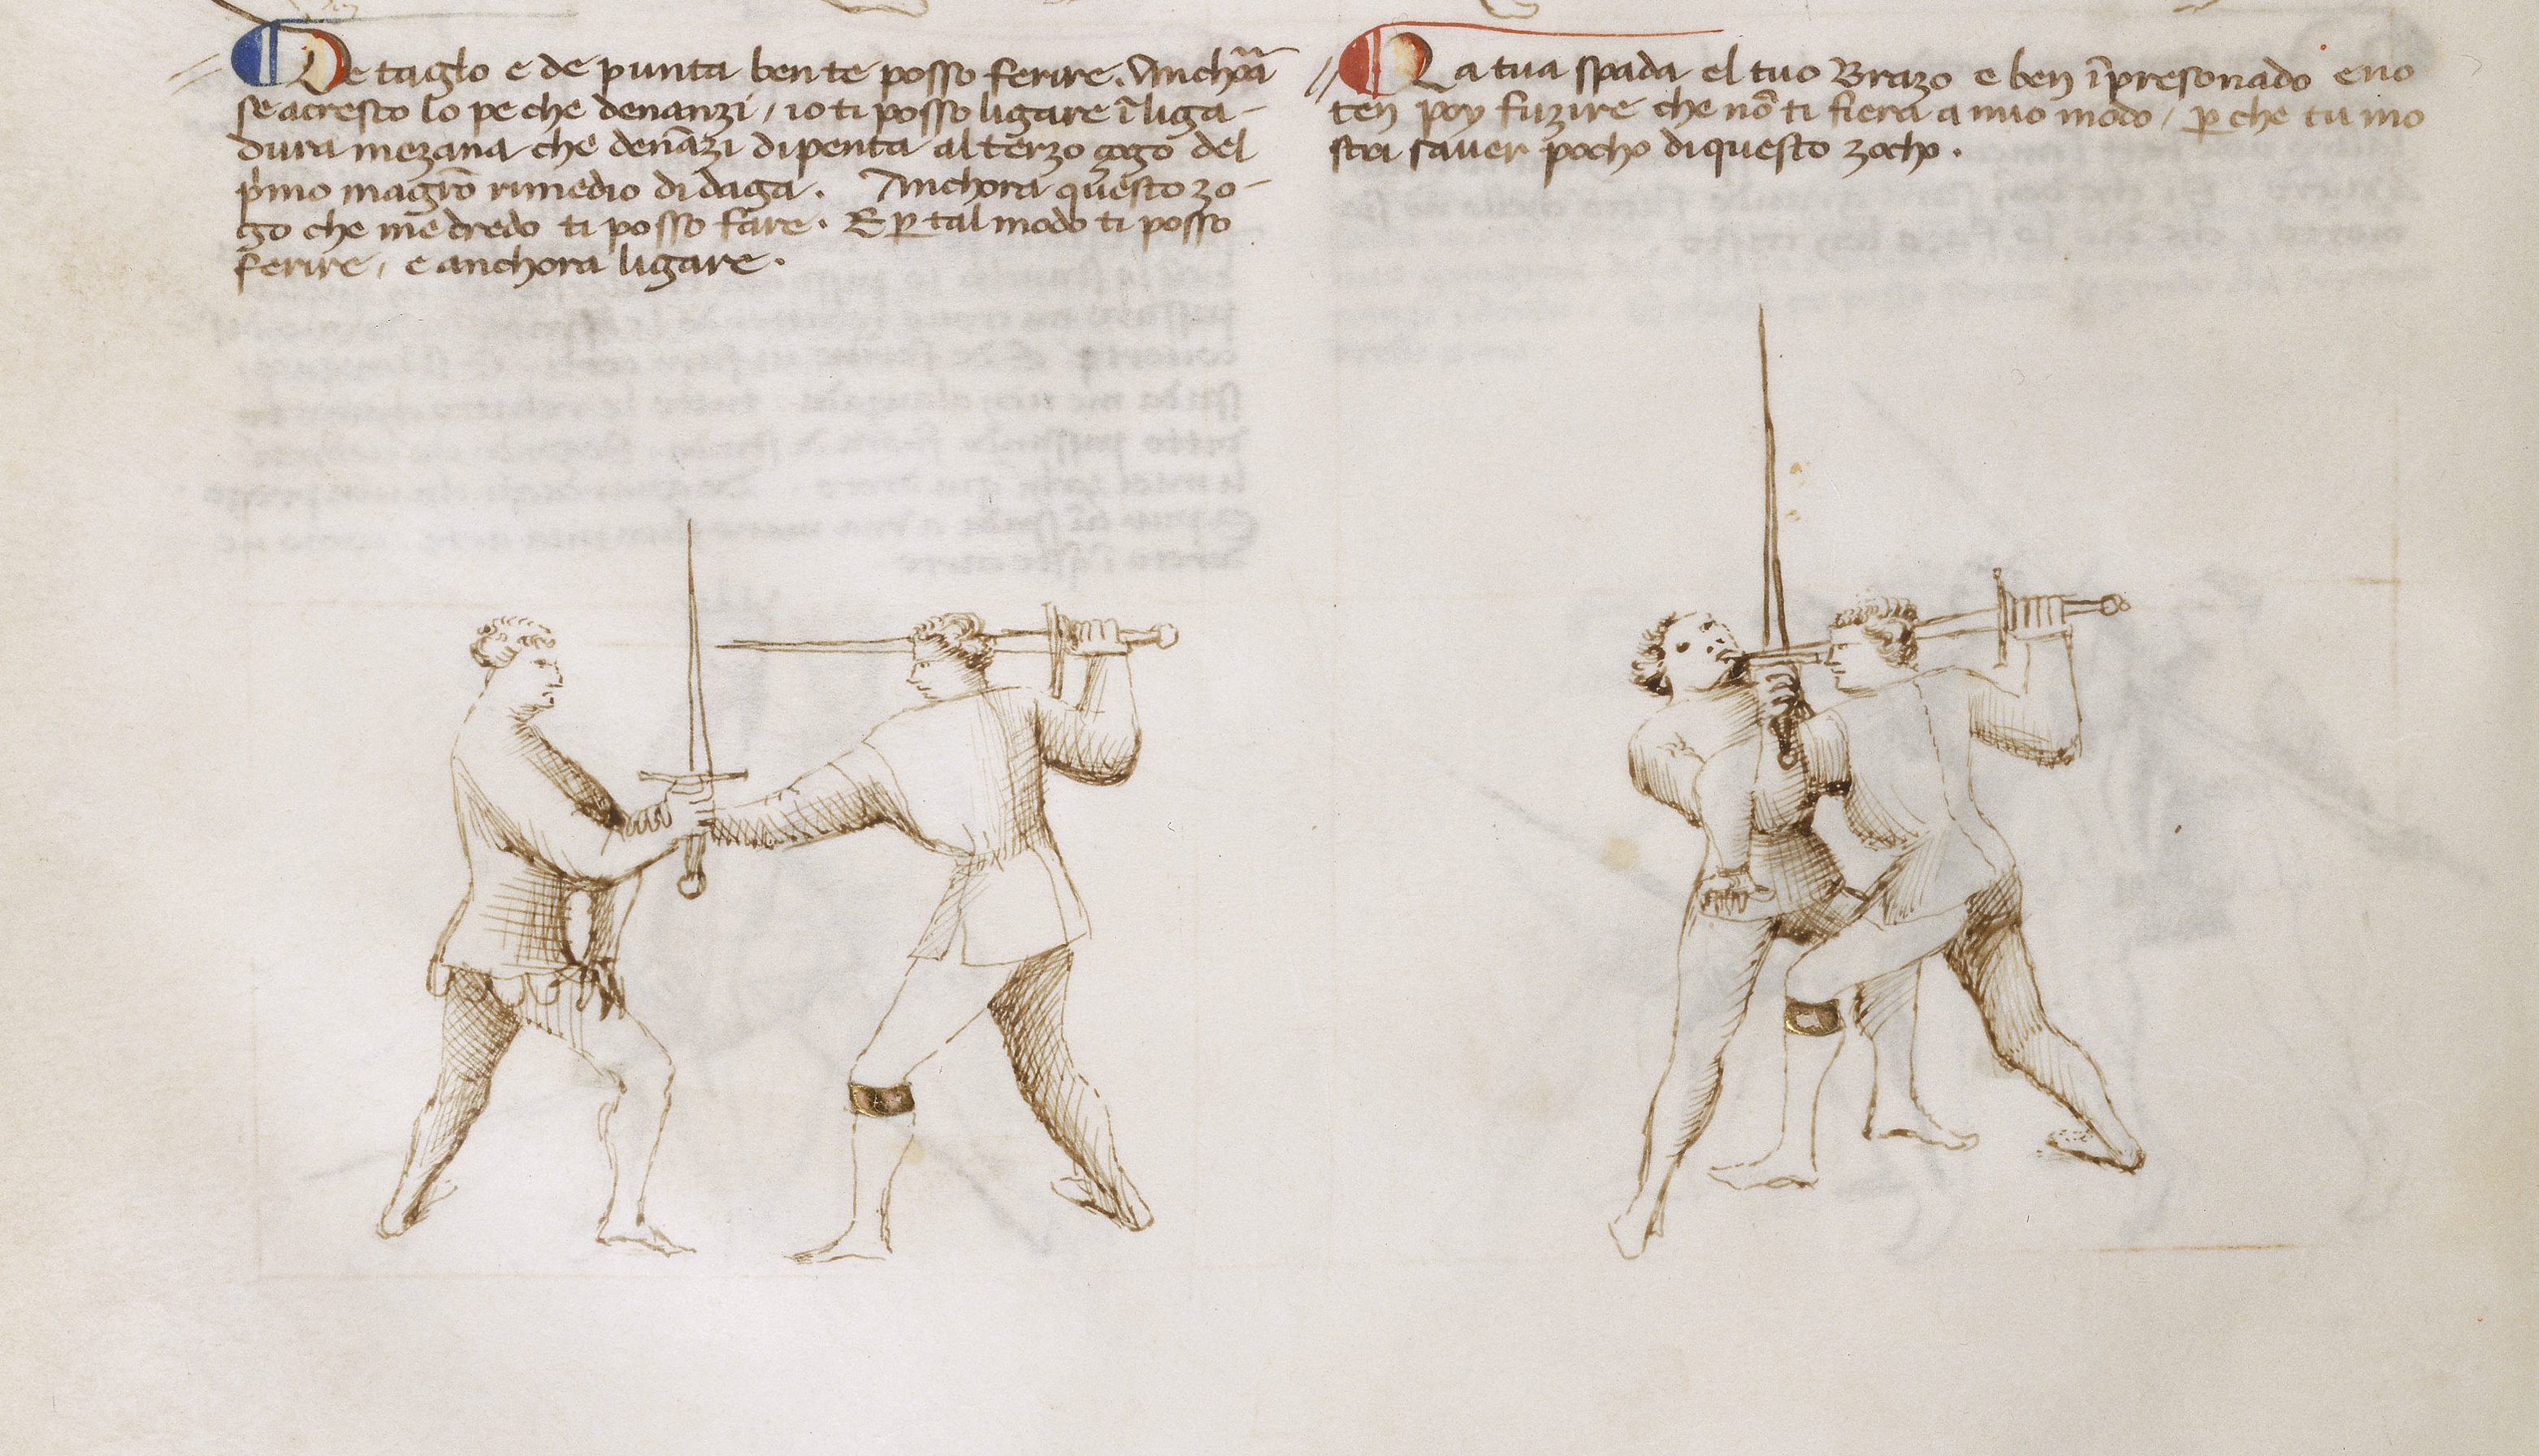 De taglo e de punta ben te posso ferire. Anchora
se acresco lo pe che denanzi / io ti posso ligare ī liga-
dura mezana che denāzi dipenta al terzo gogo del
p'mo magrō rimedio di daga. Anchora questo zo-
go che me dredo ti posso fare. E p tal modo ti posso
ferire, e anchora ligare.
La tua spada el tuo Brazo e ben īpresonado e no
ten poy fuzire che nō ti fiera a mio modo / p che tu mo
stri saver pocho di questo zocho.